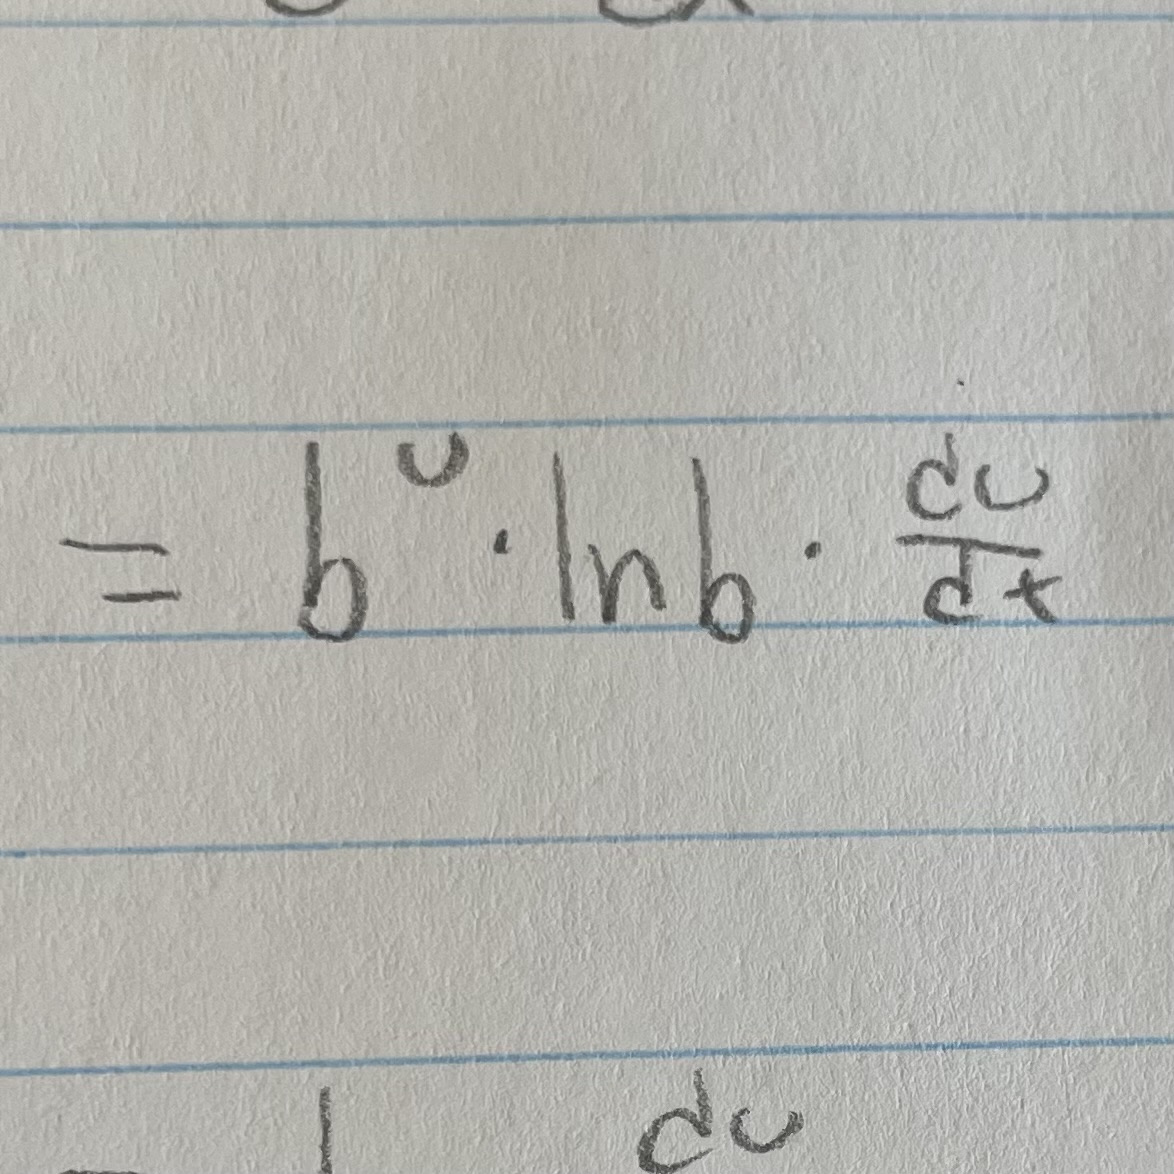 = b^u · ln b · du/dx
du